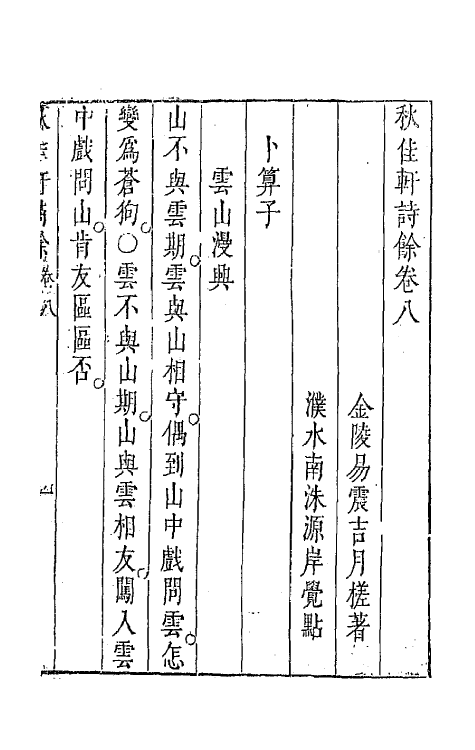 秋佳軒詩餘卷八
金陵易震吉月槎著
濮水南洙源岸覺點
卜算子
雲山漫興
山不與雲期雲與山相守偶到山中戲問雲怎
變爲蒼狗○雲不與山期山與雲相友闖入雲
中戲問山肯友區區否
秋佳軒詩餘卷八